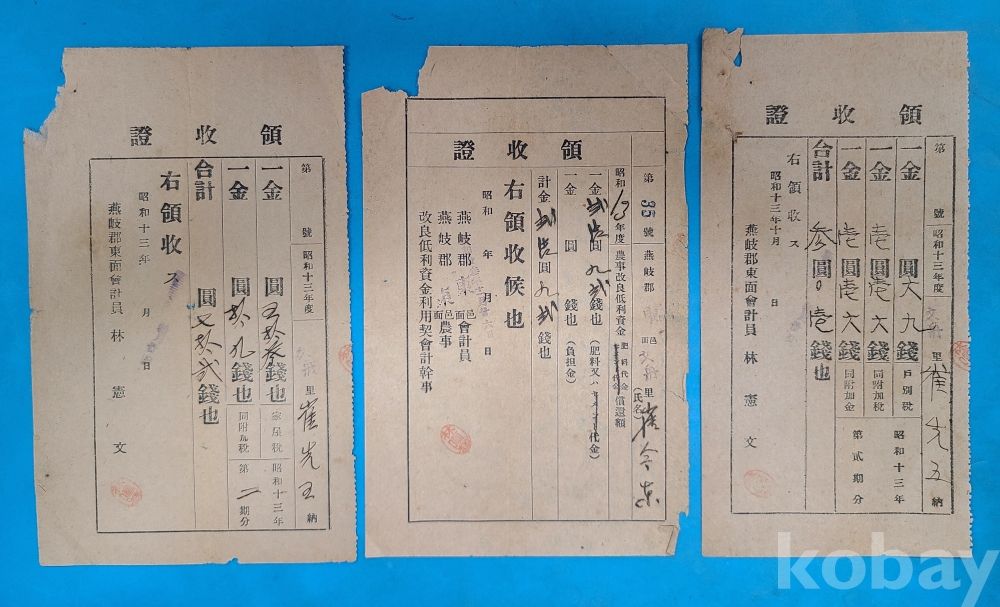 領收證
第 號 昭和十三年度 里 崔先五 納
一金 圓五拾參錢也 家屋稅 昭和十三年
一金 圓拾九錢也 同附加稅 第二期分
合計 圓七拾貳錢也
右領收ス
昭和十三年 月 日
燕岐郡東面會計員 林憲文
領收證
第35號 燕岐郡 面邑 里 (氏名)崔
昭和13年度 農事改良低利資金 肥料代金 償還額
一金 圓九 錢也 (肥料又ハ 代金)
一金 圓 錢也 (負担金)
計金 圓九 錢也
右領收候也
昭和 年 月 日
燕岐郡東面邑會計員
燕岐郡 面邑農事
改良低利資金利用契會計幹事
領收證
第 號 昭和十三年度 里 崔先五 納
一金 圓六九錢也 戶別稅 昭和十三年
一金 壱圓壱六錢也 同附加稅 第貳期分
一金 壱圓壱六錢也 同附加金
合計 參圓0壱錢也
右領收ス
昭和十三年十月 日
燕岐郡東面會計員 林憲文
kobay